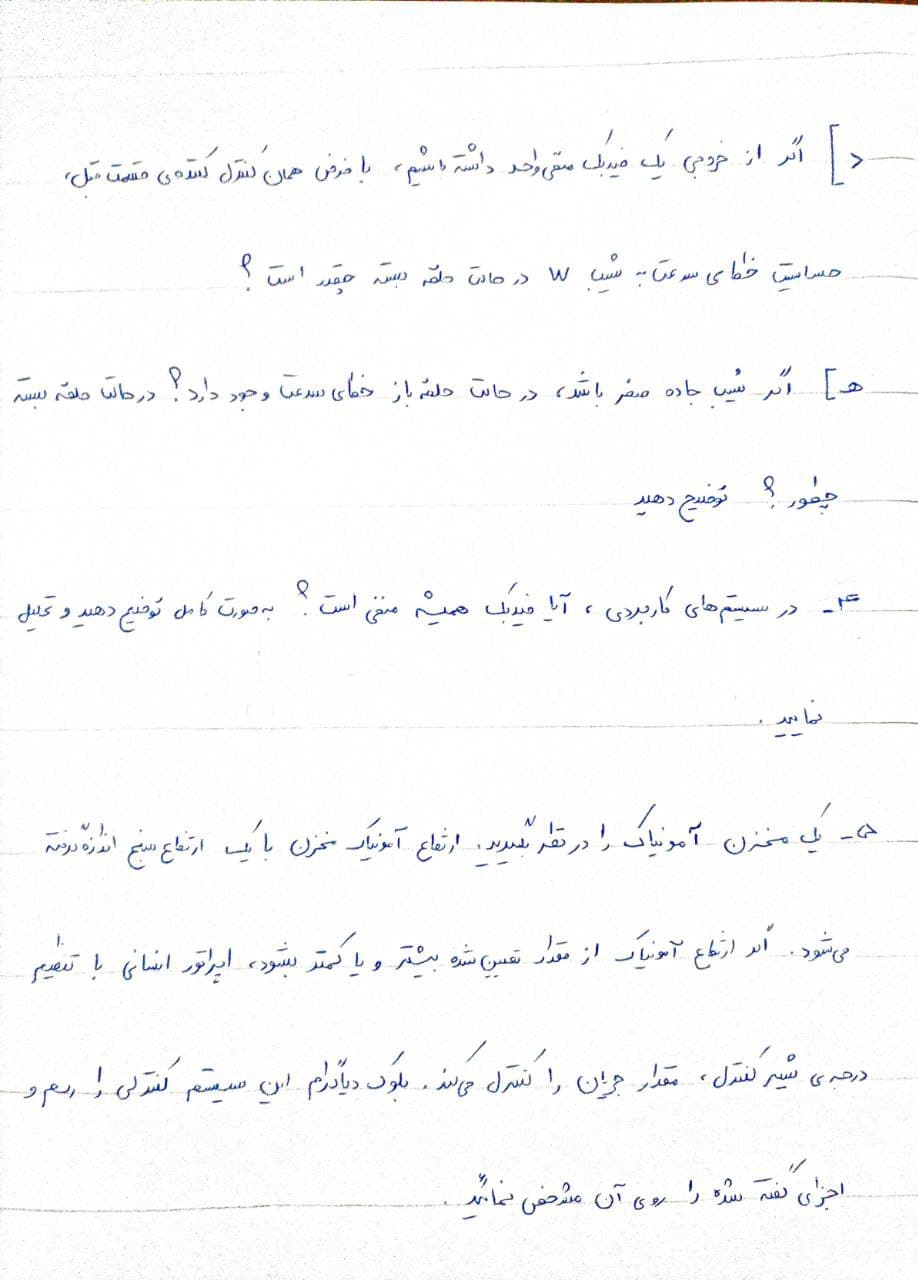 د] اگر از خروجی یک فیدبک منفی واحد داشته باشیم، با فرض همان کنترل کننده‌ی قسمت قبل،
حساسیت خطای سرعت به شیب W در حالت حلقه بسته چقدر است؟
هـ] اگر شیب جاده صفر باشد، در حالت حلقه باز خطای سرعت وجود دارد؟ در حالت حلقه بسته
چطور؟ توضیح دهید
۴- در سیستم‌های کاربردی، آیا فیدبک همیشه منفی است؟ به صورت کامل توضیح دهید و تحلیل
نمایید.
۵- یک مخزن آمونیاک را در نظر بگیرید. ارتفاع آمونیاک مخزن با یک ارتفاع سنج اندازه گرفته
می‌شود. اگر ارتفاع آمونیاک از مقدار تعیین شده بیشتر و یا کمتر بشود، اپراتور انسانی با تنظیم
درجه‌ی شیر کنترل، مقدار جریان را کنترل می‌کند. بلوک دیاگرام این سیستم کنترلی را رسم و
اجزای گفته شده را روی آن مشخص نمائید.